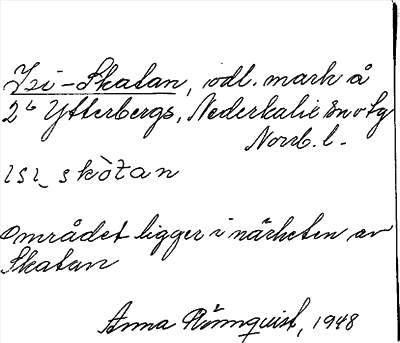 Isi-Skatan, odl. mark å
2⁶ Ytterbergs, Nederkalix sn o tg
Norrb. l.
ısı_skòtan
Området ligger i närheten av
Skatan
Anna Rönnquist, 1948